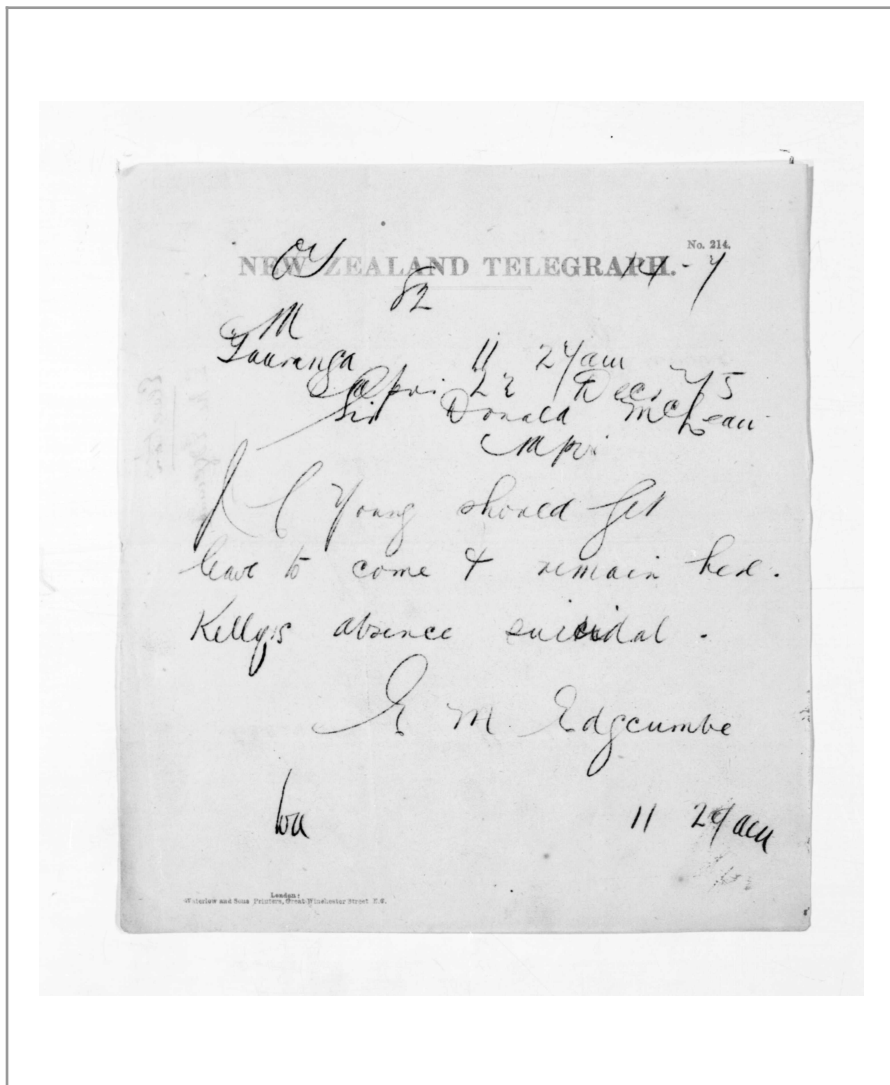 No. 214.
NEW ZEALAND TELEGRAPH.
14-7
82
M
Tauranga 11 24am
22 Decr 75
Sir Donald McLean
Napier
J C Young should get
leave to come & remain here.
Kelly's absence suicidal.
E M Edgcumbe
11 29am
London:
Waterlow and Sons Printers, Great Winchester Street E.C.